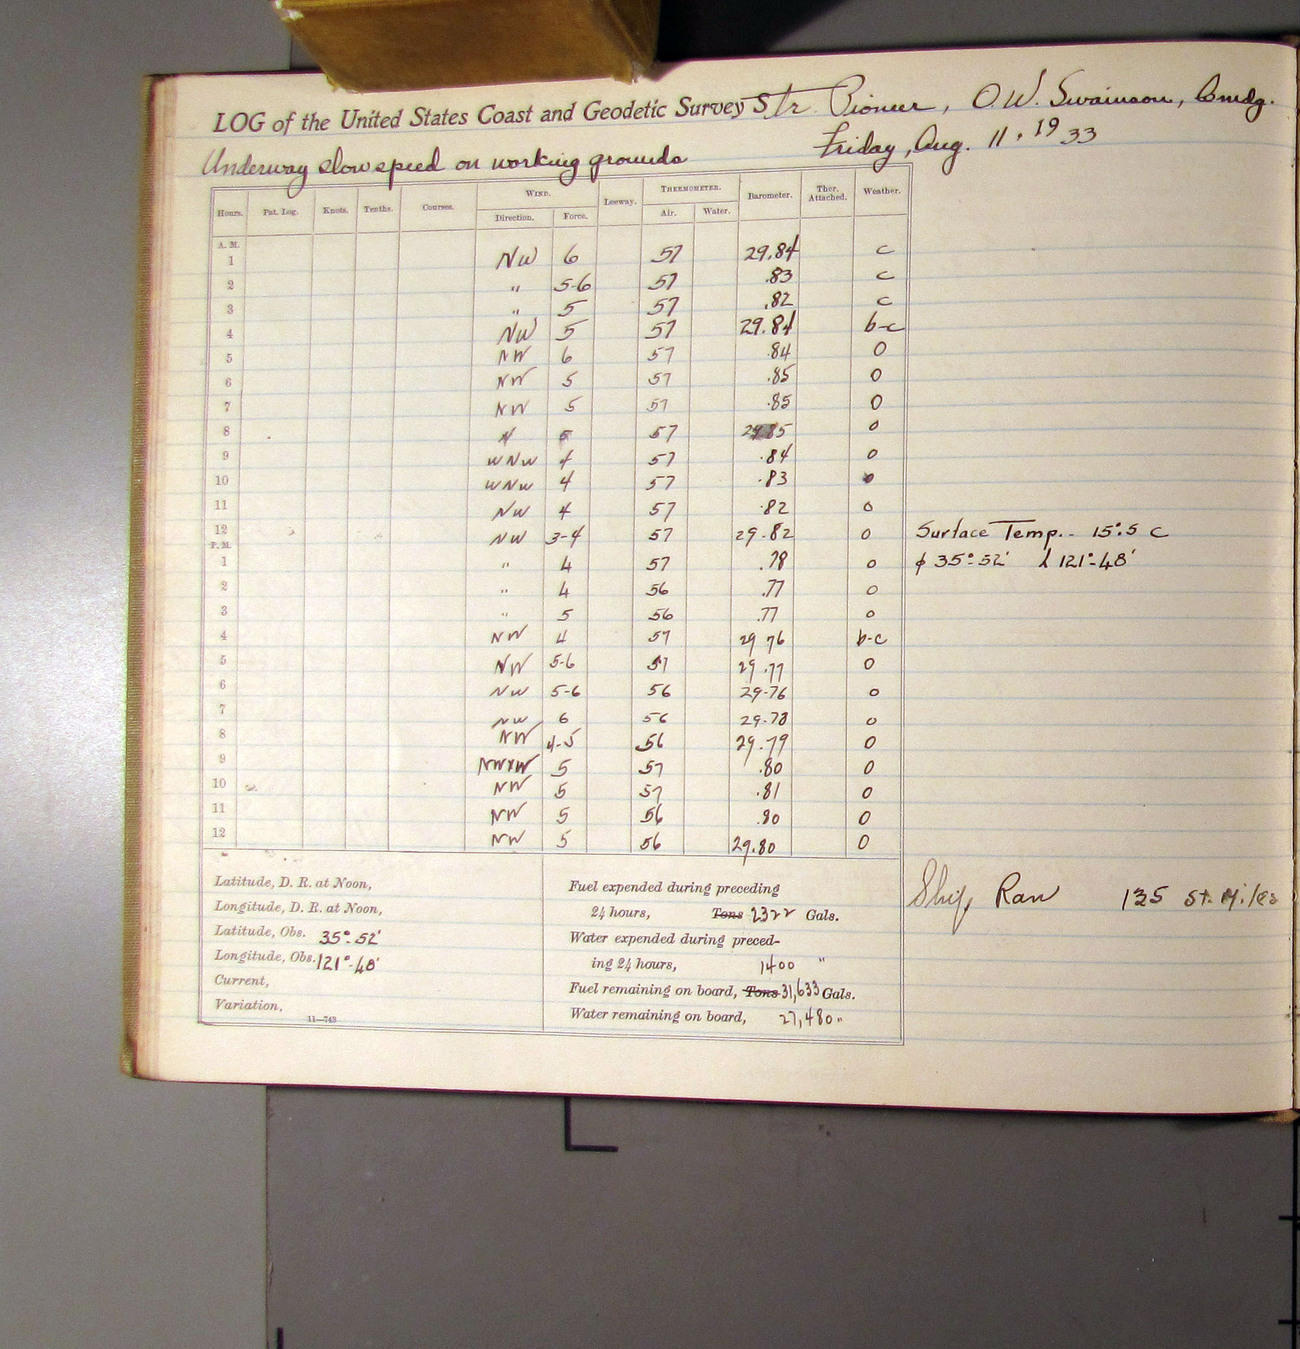 LOG of the United States Coast and Geodetic Survey Str. Pioneer, O.W. Swainson, Comdg.
Underway slow speed on working grounds Friday, Aug. 11, 1933
Hours. Pat. Log. Knots. Tenths. Courses. WIND. Leeway. THERMOMETER. Barometer. Ther. Attached. Weather.
Direction. Force. Air. Water.
A. M.
1 NW 6 57 29.84 c
2 " 5-6 57 .83 c
3 " 5 57 .82 c
4 NW 5 57 29.84 b-c
5 NW 6 57 .84 O
6 NW 5 57 .85 O
7 NW 5 57 .85 O
8 5 57 29.85 O
9 WNW 4 57 .84 O
10 WNW 4 57 .83 o
11 NW 4 57 .82 O
12 NW 3-4 57 29.82 O Surface Temp. - 15°.5 C
P. M.
1 " 4 57 .78 O ϕ 35°-52' λ 121°-48'
2 " 4 56 .77 O
3 " 5 56 .77 O
4 NW 4 57 29 76 b-c
5 NW 5-6 57 29.77 O
6 NW 5-6 56 29-76 O
7 NW 6 56 29.78 O
8 NW 4-5 56 29.79 O
9 NWxW 5 57 .80 O
10 NW 5 57 .81 O
11 NW 5 56 .80 O
12 NW 5 56 29.80 O
Latitude, D. R. at Noon,
Longitude, D. R. at Noon,
Latitude, Obs. 35°-52'
Longitude, Obs. 121°-48'
Current,
Variation,
11—743
Fuel expended during preceding
24 hours, Tons 2322 Gals.
Water expended during preced-
ing 24 hours, 1400 "
Fuel remaining on board, Tons 31,633 Gals.
Water remaining on board, 27,480 "
Ship Ran 135 St. Miles